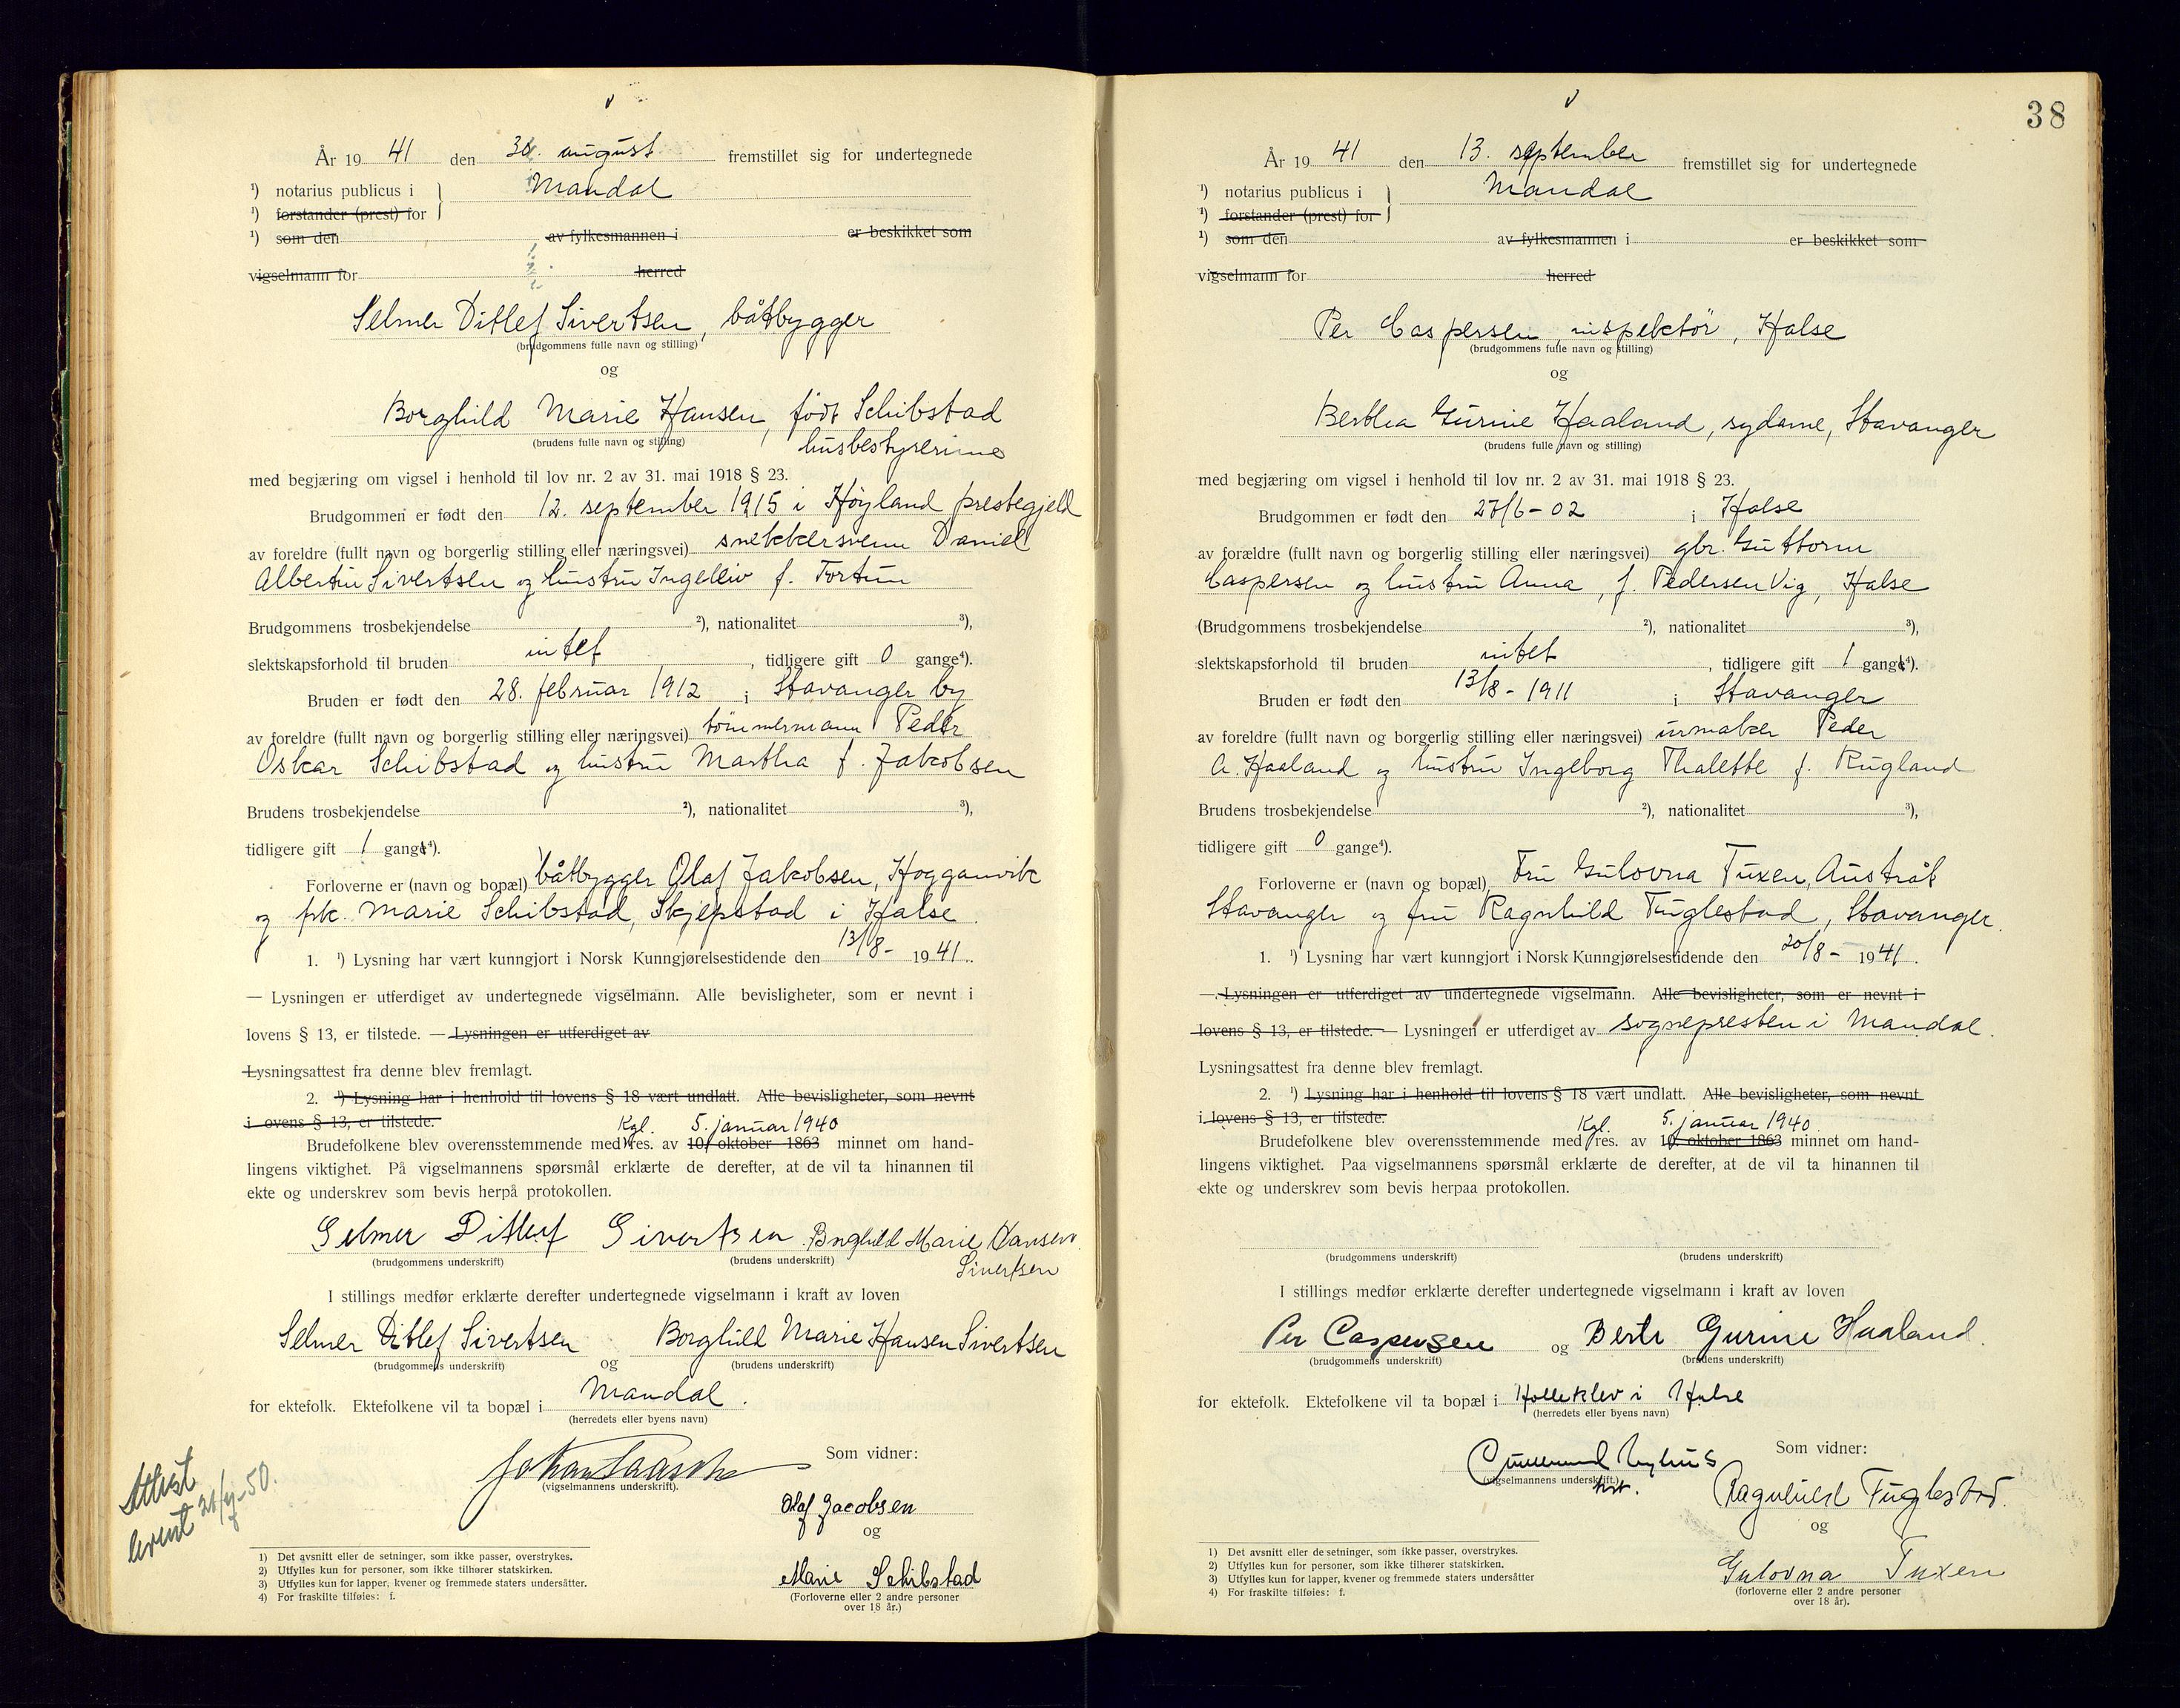 År 19 41 den 30. august fremstillet sig for undertegnede
¹) notarius publicus i } Mandal
¹) forstander (prest) for
¹) som den av fylkesmannen i er beskikket som
vigselmann for herred
Selmer Ditlef Sivertsen, båtbygger
(brudgommens fulle navn og stilling)
og
Borghild Marie Hansen, født Schibstad
(brudens fulle navn og stilling) husbestyrerinne
med begjæring om vigsel i henhold til lov nr. 2 av 31. mai 1918 § 23.
Brudgommen er født den 12. september 1915 i Høyland prestegjeld
av foreldre (fullt navn og borgerlig stilling eller næringsvei) snekkersvenn Daniel
Albertin Sivertsen og hustru Ingeleiv f. Tortun
Brudgommens trosbekjendelse ²), nationalitet ³),
slektskapsforhold til bruden intet, tidligere gift 0 gange⁴).
Bruden er født den 28. februar 1912 i Stavanger by
av foreldre (fullt navn og borgerlig stilling eller næringsvei) tømmermann Peder
Oskar Schibstad og hustru Martha f. Jakobsen
Brudens trosbekjendelse ²), nationalitet ³),
tidligere gift 1 gang⁴).
Forloverne er (navn og bopæl) båtbygger Olaf Jakobsen, Hogganvik
og frk. Marie Schibstad, Skjepstad i Halse.
1. ¹) Lysning har vært kunngjort i Norsk Kunngjørelsestidende den 13/8- 1941.
— Lysningen er utferdiget av undertegnede vigselmann. Alle bevisligheter, som er nevnt i
lovens § 13, er tilstede. — Lysningen er utferdiget av
Lysningsattest fra denne blev fremlagt.
2. ¹) Lysning har i henhold til lovens § 18 vært undlatt. Alle bevisligheter, som nevnt
i ovens § 13, er tilstede.
Kgl. 5. januar 1940
Brudefolkene blev overensstemmende med res. av 10. oktober 1863 minnet om hand-
lingens viktighet. På vigselmannens spørsmål erklærte de derefter, at de vil ta hinannen til
ekte og underskrev som bevis herpå protokollen.
Selmer Ditlef Sivertsen Borghild Marie Hansen
(brudgommens underskrift) (brudens underskrift) Sivertsen
I stillings medfør erklærte derefter undertegnede vigselmann i kraft av loven
Selmer Ditlef Sivertsen og Borghild Marie Hansen Sivertsen
(brudgommens underskrift) (brudens underskrift)
for ektefolk. Ektefolkene vil ta bopæl i Mandal.
(herredets eller byens navn)
Som vidner:
(vigselmannens underskrift).
Olaf Jacobsen
og
Marie Schibstad
(Forloverne eller 2 andre personer
over 18 år.)
Attest
levert 50.
1) Det avsnitt eller de setninger, som ikke passer, overstrykes.
2) Utfylles kun for personer, som ikke tilhører statskirken.
3) Utfylles kun for lapper, kvener og fremmede staters undersåtter.
4) For fraskilte tilføies: f.
38
År 19 41 den 13. september fremstillet sig for undertegnede
¹) notarius publicus i } Mandal
¹) forstander (prest) for
¹) som den av fylkesmannen i er beskikket som
vigselmann for herred
Per Caspersen, inspektør, Halse
(brudgommens fulle navn og stilling)
og
Berthea Gurine Haaland, sydame, Stavanger
(brudens fulle navn og stilling)
med begjæring om vigsel i henhold til lov nr. 2 av 31. mai 1918 § 23.
Brudgommen er født den 27/6-02 i Halse
av forældre (fullt navn og borgerlig stilling eller næringsvei) gbr. Guttorm
Caspersen og hustru Anna, f. Pedersen Vig, Halse
(Brudgommens trosbekjendelse ²), nationalitet ³),
slektskapsforhold til bruden intet, tidligere gift 1 gang⁴).
Bruden er født den 13/8-1911 i Stavanger
av foreldre (fullt navn og borgerlig stilling eller næringsvei) urmaker Peder
A. Haaland og hustru Ingeborg Thalette f. Rugland
Brudens trosbekjendelse ²), nationalitet ³),
tidligere gift 0 gange⁴).
Forloverne er (navn og bopæl) Fru Gulovna Tuxen, Austråt
Stavanger og fru Ragnhild Fuglestad, Stavanger.
1. ¹) Lysning har vært kunngjort i Norsk Kunngjørelsestidende den 20/8- 1941.
—. Lysningen er utferdiget av undertegnede vigselmann. Alle bevisligheter, som er nevnt i
lovens § 13, er tilstede. — Lysningen er utferdiget av sognepresten i Mandal.
Lysningsattest fra denne blev fremlagt.
2. ¹) Lysning har i henhold til lovens § 18 vært undlatt. Alle bevisligheter, som nevnt
i lovens § 13, er tilstede.
Kgl. 5. januar 1940.
Brudefolkene blev overensstemmende med res. av 10. oktober 1863 minnet om hand-
lingens viktighet. Paa vigselmannens spørsmål erklærte de derefter, at de vil ta hinannen til
ekte og underskrev som bevis herpaa protokollen.
(brudgommens underskrift) (brudens underskrift)
I stillings medfør erklærte derefter undertegnede vigselmann i kraft av loven
Per Caspersen og Berte Gurine Haaland.
(brudgommens underskrift) (brudens underskrift)
for ektefolk. Ektefolkene vil ta bopæl i Holleklev i Halse
(herredets eller byens navn)
Som vidner:
(vigselmannens underskrift.)
Ragnhild Fuglestad.
og
Gulovna Tuxen
(forloverne eller 2 andre personer
over 18 år).
1) Det avsnitt eller de setninger, som ikke passer, overstrykes.
2) Utfylles kun for personer, som ikke tilhører statskirken.
3) Utfylles kun for lapper, kvener og fremmede staters undersåtter
4) For fraskilte tilføies: f.